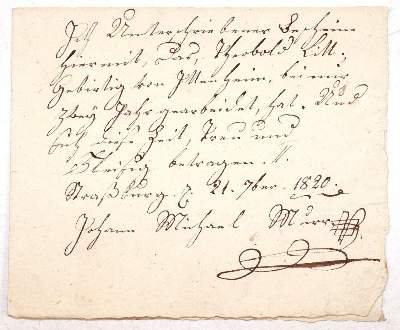 Ich Unterschriebener Bescheine
hiermit, das, Theobold Litt.
Gebirtig von Ittenheim, bei mir
zwey Jahr gearbeidet, hat. Und
sich diese Zeit, Treu und
Fleisig betragen.
Straßburg. 21. 7ber. 1820.
Johann Michael Murr